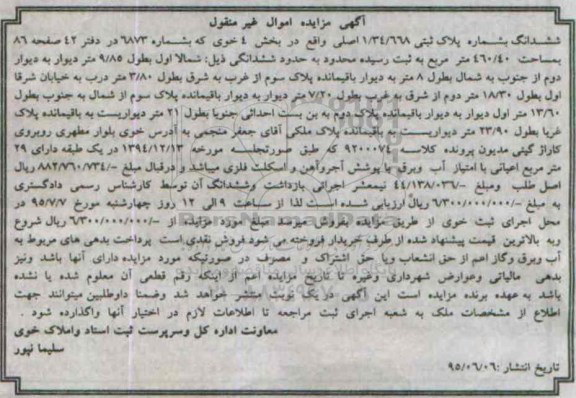 آگهی مزایده اموال غیر منقول
ششدانگ بشماره پلاک ثبتی ۱/۳۴/۶۶۸ اصلی واقع در بخش ۴ خوی که بشماره ۶۸۷۳ در دفتر ۴۲ صفحه ۸۶
بمساحت ۴۶۰/۴۰ متر مربع به ثبت رسیده محدود به حدود ششدانگی ذیل: شمالا اول بطول ۹/۸۵ متر دیوار به دیوار
دوم از جنوب به شمال بطول ۸ متر به دیوار باقیمانده پلاک سوم از غرب به شرق بطول ۳/۸۰ متر درب به خیابان شرقا
اول بطول ۱۸/۳۰ متر دوم از شرق به غرب بطول ۷/۲۰ متر دیوار به دیوار باقیمانده پلاک سوم از شمال به جنوب بطول
۱۳/۶۰ متر اول دیوار به دیوار باقیمانده پلاک دوم به بن بست احداثی جنوبا بطول ۲۱ متر دیواریست به باقیمانده پلاک
غربا بطول ۲۳/۹۰ متر دیواریست به باقیمانده پلاک ملکی آقای جعفر منجمی به آدرس خوی بلوار مطهری روبروی
کاراژ گیتی مدیون پرونده کلاسه ۹۲۰۰۰۷۴ که طبق صورتجلسه مورخه ۱۳۹۴/۱۲/۱۳ در یک طبقه دارای ۲۹
متر مربع اعیانی با امتیاز آب وبرق با پوشش آجروآهن و اسکلت فلزی میباشد و درقبال مبلغ ۸۸۲/۷۶۰/۷۳۴/- ریال
اصل طلب ومبلغ ۴۴/۱۳۸/۰۳۶/- نیمعشر اجرائی بازداشت وششدانگ آن توسط کارشناس رسمی دادگستری
به مبلغ ۶/۳۰۰/۰۰۰/۰۰۰/- ریال ارزیابی شده است لذا از ساعت ۹ الی ۱۲ روز چهارشنبه مورخ ۹۵/۷/۷ در
محل اجرای ثبت خوی از طریق مزایده بفروش میرسد مبلغ مورد مزایده از ۶/۳۰۰/۰۰۰/۰۰۰/- ریال شروع
وبه بالاترین قیمت پیشنهاد شده از طرف خریدار فروخته می شود فروش نقدی است پرداخت بدهی های مربوط به
آب وبرق وگاز اعم از حق انشعاب ویا حق اشتراک و مصرف در صورتیکه مورد مزایده دارای آنها باشد ونیز
بدهی مالیاتی وعوارض شهرداری وغیره تا تاریخ مزایده اعم از اینکه رقم قطعی آن معلوم شده یا نشده
باشد به عهده برنده مزایده است این آگهی در یک نوبت منتشر خواهد شد وضمنا داوطلبین میتوانند جهت
اطلاع از مشخصات ملک به شعبه اجرای ثبت مراجعه تا اطلاعات لازم در اختیار آنها واگذارده شود .
معاونت اداره کل وسرپرست ثبت اسناد واملاک خوی
سلیمانپور
تاریخ انتشار :۹۵/۰۶/۰۶